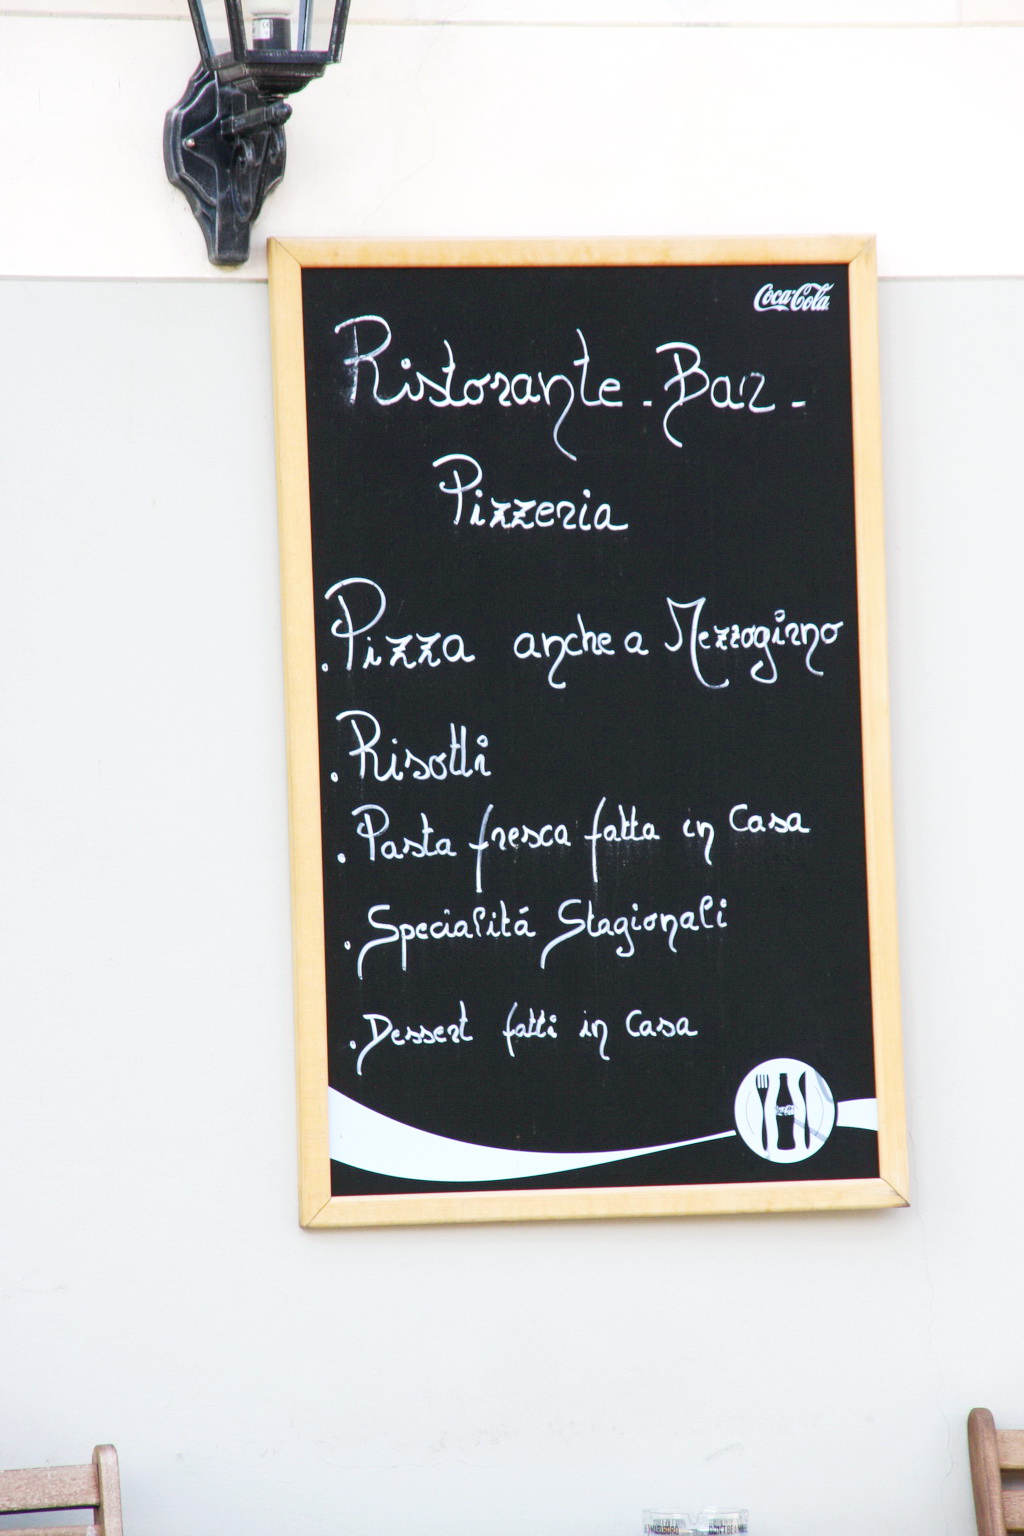 Coca-Cola
Ristorante - Bar -
Pizzeria
. Pizza anche a Mezzogirno
. Risotti
. Pasta fresca fatta in Casa
. Specialitá Stagionali
. Dessert fatti in Casa
Coca-Cola
MARLBORO